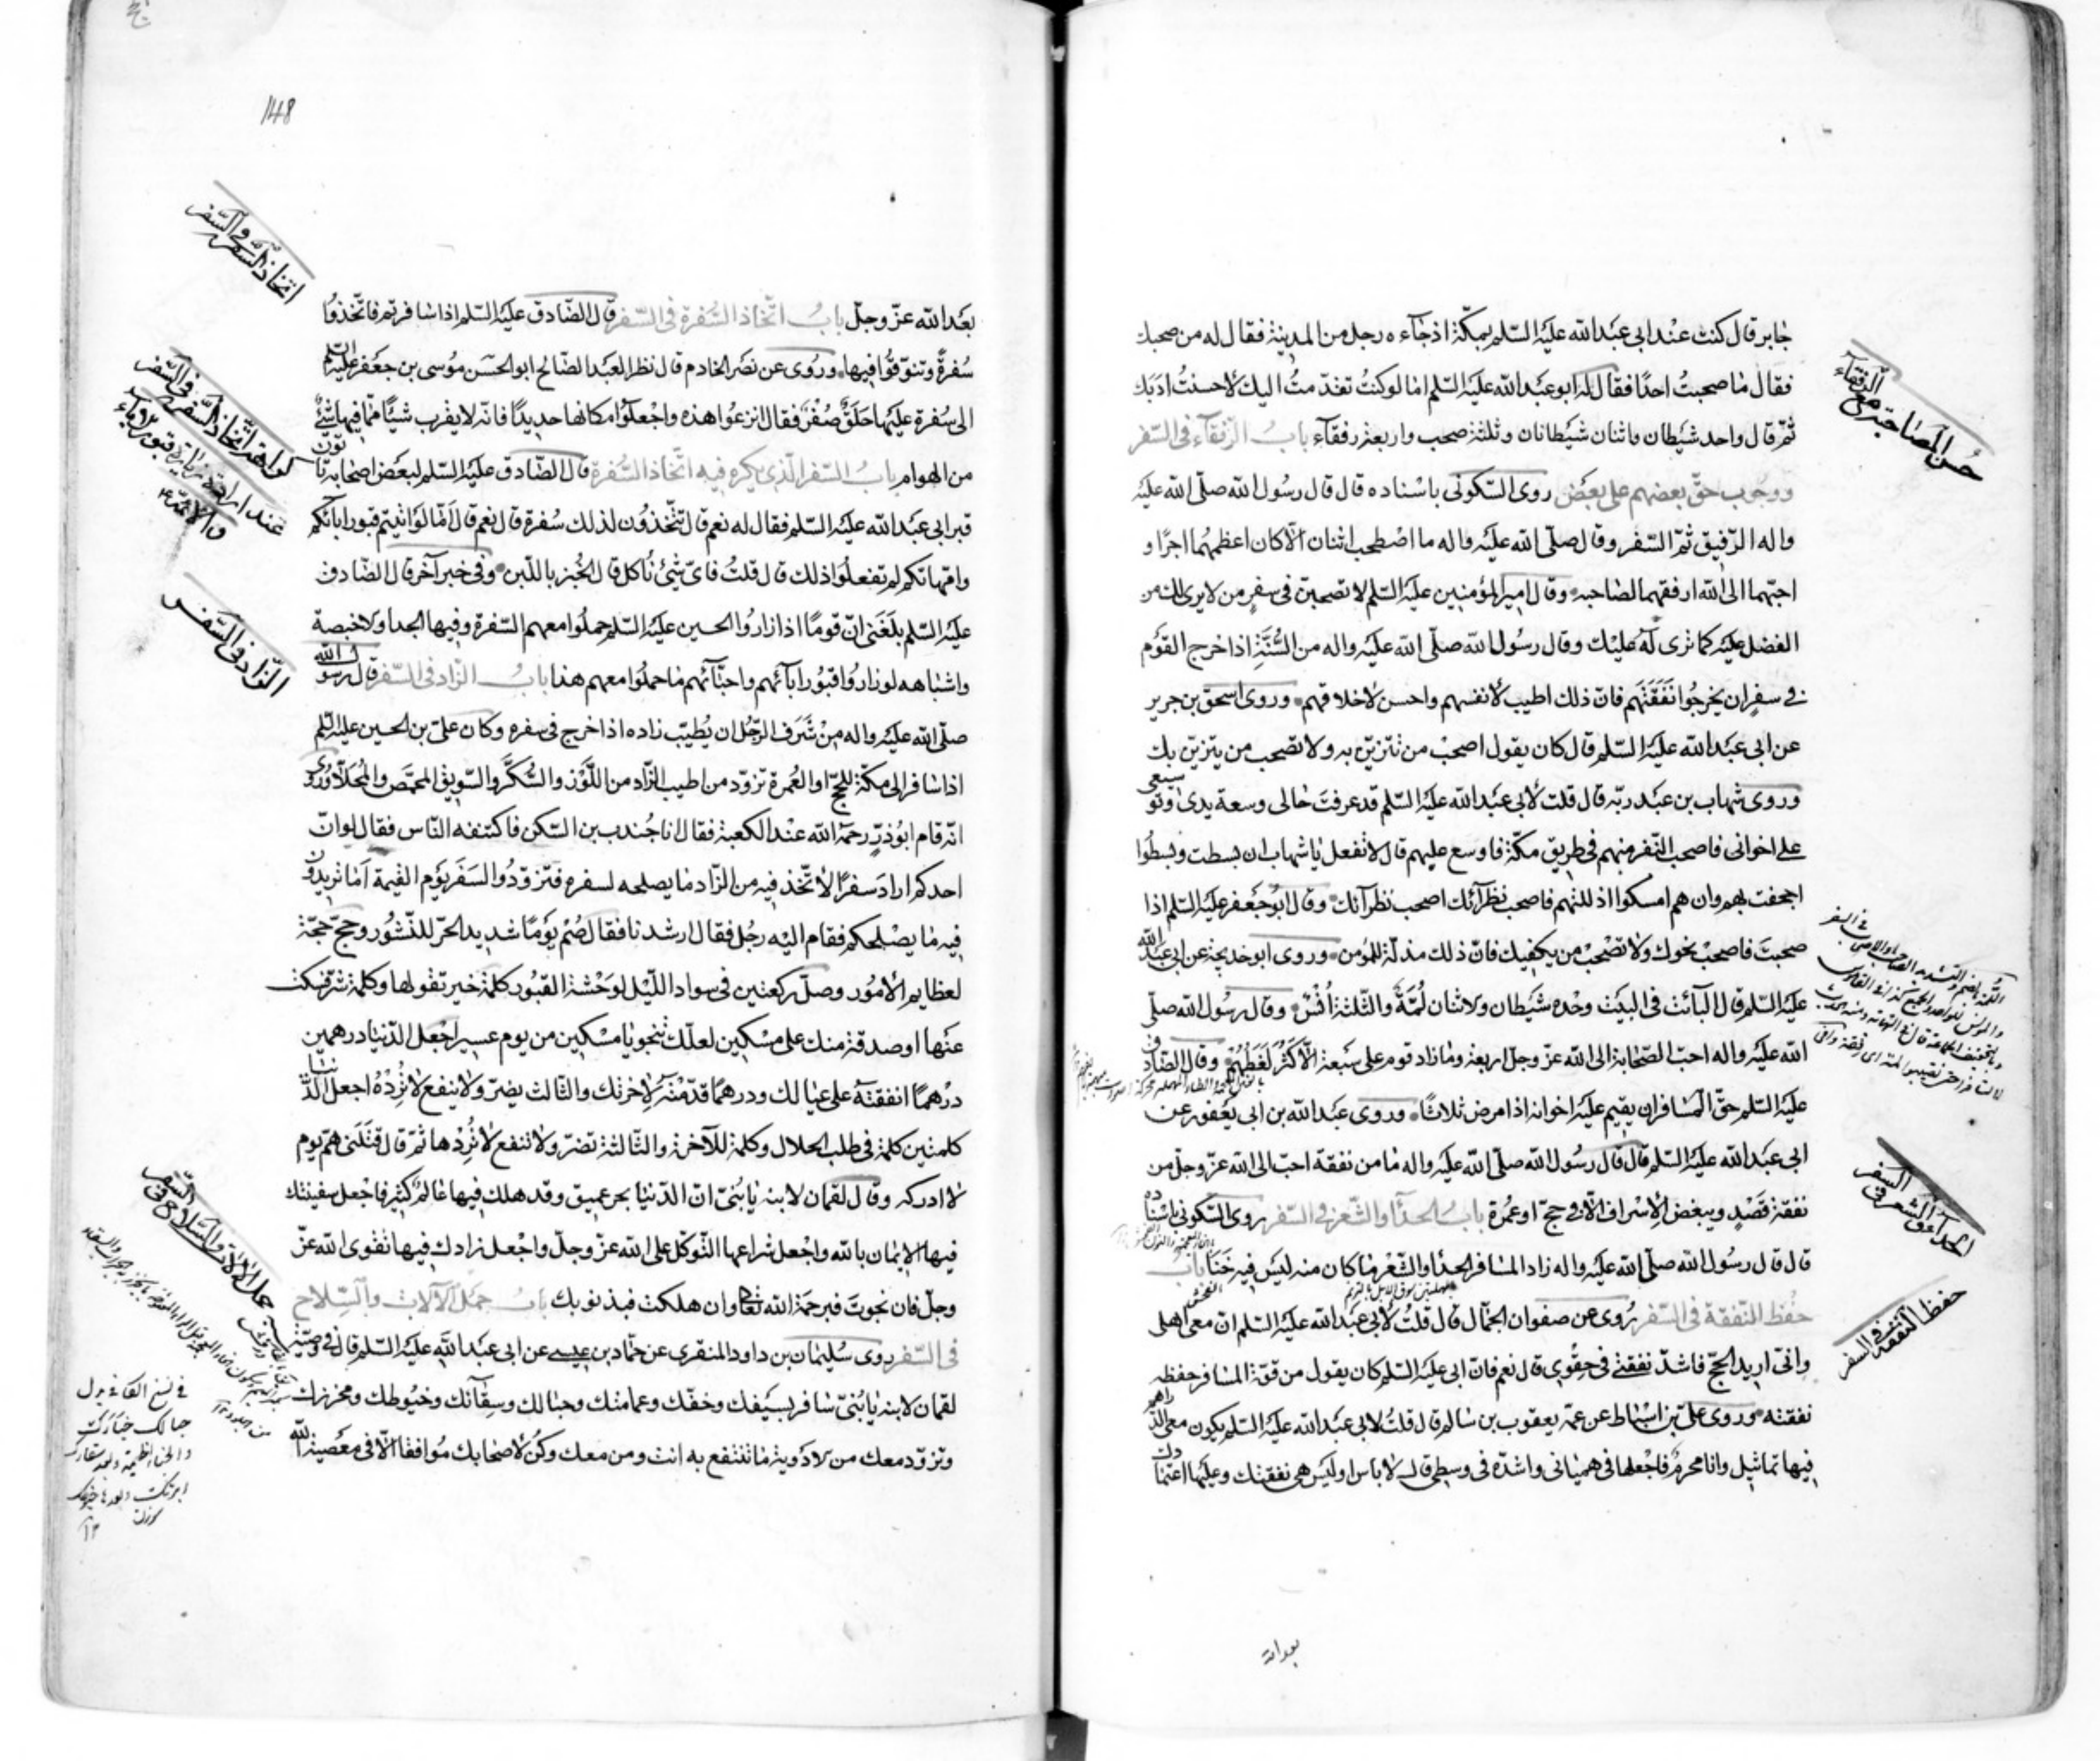 جابر قال كنت عند ابى عبد الله عليه السلم بمكة اذ جاءه رجل من المدينة فقال له من صحبك
فقال ما صحبت احدا فقال له ابو عبد الله عليه السلم اما لو كنت تقدمت اليك لاحسنت ادبك
ثم قال واحد شيطان واثنان شيطانان وثلثة صحب واربعة رفقاء باب الرفقاء فى السفر
ووجوب حق بعضهم على بعض روى السكونى باسناده قال قال رسول الله صلى الله عليه
واله الرفيق ثم السفر وقال صلى الله عليه واله ما اصطحب اثنان الا كان اعظمهما اجرا و
احبهما الى الله ارفقهما لصاحبه وقال امير المؤمنين عليه السلم لا تصحبن فى سفر من لا يرى لك من
الفضل عليه كما ترى له عليك وقال رسول الله صلى الله عليه واله من السنة اذا خرج القوم
فى سفر ان يخرجوا نفقتهم فان ذلك اطيب لانفسهم واحسن لاخلاقهم وروى اسحق بن جرير
عن ابى عبد الله عليه السلم قال كان يقول اصحب من تتزين به ولا تصحب من يتزين بك
وروى شهاب بن عبد ربه قال قلت لابى عبد الله عليه السلم قد عرفت حالى وسعة يدى وتوسيعى
على اخوانى فاصحب النفر منهم فى طريق مكة فاوسع عليهم قال لا تفعل يا شهاب ان بسطت وبسطوا
اجحفت بهم وان هم امسكوا اذللتهم فاصحب نظرائك اصحب نظرائك وقال ابو جعفر عليه السلم اذا
صحبت فاصحب نحوك ولا تصحب من يكفيك فان ذلك مذلة للمؤمن وروى ابو خديجة عن ابى عبد الله
عليه السلم قال البائت فى البيت وحده شيطان والاثنان لمة والثلثة انس وقال رسول الله صلى
الله عليه واله احب الصحابة الى الله عز وجل اربعة وما زاد قوم على سبعة الا كثر لغطهم وقال الصادق
عليه السلم حق المسافر ان يقيم عليه اخوانه اذا مرض ثلاثا وروى عبد الله بن ابى يعفور عن
ابى عبد الله عليه السلم قال قال رسول الله صلى الله عليه واله ما من نفقة احب الى الله عز وجل من
نفقة قصد ويبغض الاسراف الا فى حج او عمرة باب الحداء والشعر فى السفر روى السكونى باسناده
قال قال رسول الله صلى الله عليه واله زاد المسافر الحداء والشعر ما كان منه ليس فيه خنا باب
حفظ النفقة فى السفر روى عن صفوان الجمال قال قلت لابى عبد الله عليه السلم ان معى اهلى
وانى اريد الحج فاشد نفقتى فى حقوى قال نعم فان ابى عليه السلم كان يقول من قوة المسافر حفظه
نفقته وروى على بن اسباط عن عمه يعقوب بن سالم قال قلت لابى عبد الله عليه السلم يكون معى الدراهم
فيها تماثيل وانا محرم فاجعلها فى هميانى واشده فى وسطى قال لا باس اوليس هى نفقتك وعليها اعتمادك
حسن المصاحبة مع الرفقاء
الحداء والشعر فى السفر
حفظ النفقة فى السفر
بعد الله
148
بعد الله عز وجل باب اتخاذ السفرة فى السفر قال الصادق عليه السلم اذا سافرتم فاتخذوا
سفرة وتنوقوا فيها وروى عن نصر الخادم قال نظر العبد الصالح ابو الحسن موسى بن جعفر عليه السلم
الى سفرة عليها حلق صفر فقال انزعوا هذه واجعلوا مكانها حديدا فانه لا يقرب شيئا مما فيها شئ
من الهوام باب السفر الذى يكره فيه اتخاذ السفرة قال الصادق عليه السلم لبعض اصحابه تاتون
قبر ابى عبد الله عليه السلم فقال له نعم قال تتخذون لذلك سفرة قال نعم قال اما لو اتيتم قبور ابائكم
وامهاتكم لم تفعلوا ذلك قال قلت فاى شئ ناكل قال الخبز باللبن وفى خبر آخر قال الصادق
عليه السلم بلغنى ان قوما اذا زاروا الحسين عليه السلم حملوا معهم السفرة وفيها الجداء والاخبصة
واشباهه لو زاروا قبور ابائهم واحبائهم ما حملوا معهم هذا باب الزاد فى السفر قال رسول الله
صلى الله عليه واله من شرف الرجل ان يطيب زاده اذا خرج فى سفره وكان على بن الحسين عليه السلم
اذا سافر الى مكة للحج او العمرة تزود من اطيب الزاد من اللوز والسكر والسويق المحمص والمحلا وروى
انه قام ابو ذر رحمه الله عند الكعبة فقال انا جندب بن السكن فاكتنفه الناس فقال لو ان
احدكم اراد سفرا لاتخذ فيه من الزاد ما يصلحه لسفره فتزودوا لسفر يوم القيمة اما تريدون
فيه ما يصلحكم فقام اليه رجل فقال ارشدنا فقال صم يوما شديد الحر للنشور وحج حجة
لعظايم الامور وصل ركعتين فى سواد الليل لوحشة القبور كلمة خير تقولها وكلمة شر تسكت
عنها او صدقة منك على مسكين لعلك تنجو يا مسكين من يوم عسير اجعل الدنيا درهمين
درهما انفقته على عيالك ودرهما قدمته لاخرتك والثالث يضر ولا ينفع لا ترده اجعل الدنيا
كلمتين كلمة فى طلب الحلال وكلمة للآخرة والثالثة تضر ولا تنفع لا تردها ثم قال قتلنى هم يوم
لا ادركه وقال لقمان لابنه يا بنى ان الدنيا بحر عميق وقد هلك فيها عالم كثير فاجعل سفينتك
فيها الايمان بالله واجعل شراعها التوكل على الله عز وجل واجعل زادك فيها تقوى الله عز
وجل فان نجوت فبرحمة الله تعالى وان هلكت فبذنوبك باب حمل الآلات والسلاح
فى السفر روى سليمان بن داود المنقرى عن حماد بن عيسى عن ابى عبد الله عليه السلم قال فى وصية
لقمان لابنه يا بنى سافر بسيفك وخفك وعمامتك وحبالك وسقائك وخيوطك ومخرزك
وتزود معك من الادوية ما تنتفع به انت ومن معك وكن لاصحابك موافقا الا فى معصية الله
اتخاذ السفرة فى السفر
كراهة اتخاذ السفرة فى السفر
عند ارادة زيارة قبور الاولياء
والائمة ع
الزاد فى السفر
حمل الآلات والسلاح فى السفر